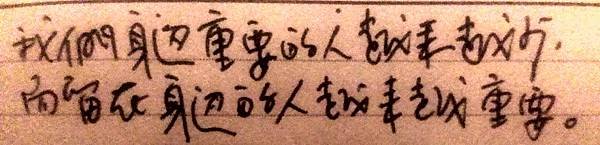 我們身边重要的人越来越少.
而留在身边的人越来越重要。